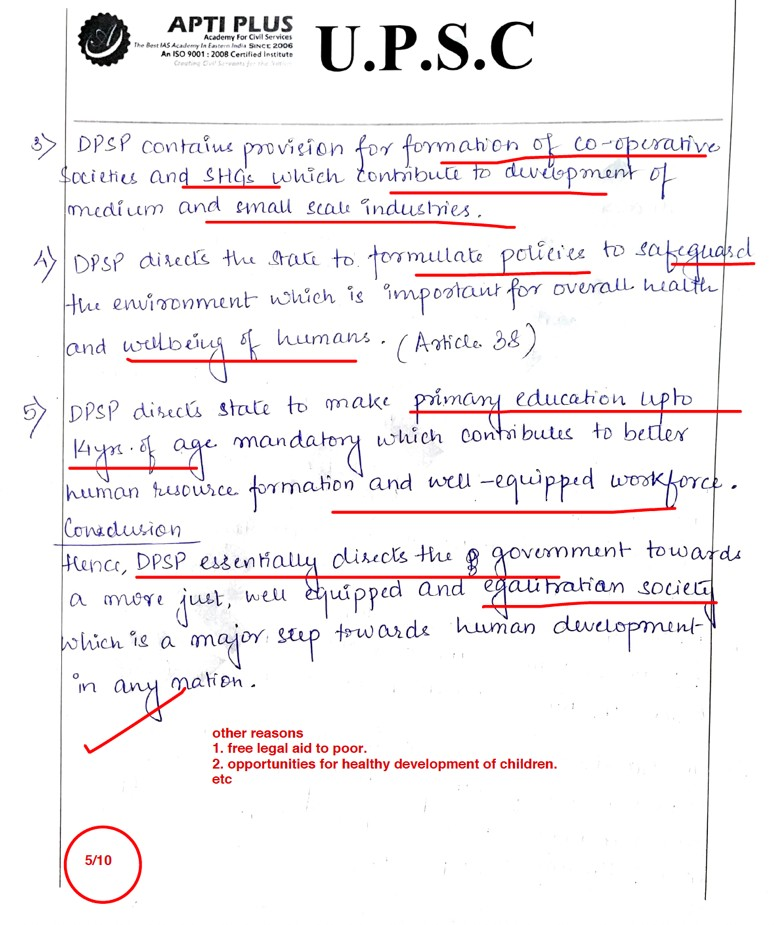 APTI PLUS
Academy For Civil Services
The Best IAS Academy In Eastern India SINCE 2006
An ISO 9001 : 2008 Certified Institute
Creating Civil Servants for the Nation
U.P.S.C
3) DPSP contains provision for formation of co-operative
Societies and SHGs which contribute to development of
medium and small scale industries.
4) DPSP directs the state to formulate policies to safeguard
the environment which is important for overall health
and wellbeing of humans. (Article 38)
5) DPSP directs state to make primary education upto
14yrs. of age mandatory which contributes to better
human resource formation and well-equipped workforce.
Conclusion
Hence, DPSP essentially directs the government towards
a more just, well equipped and egalitratian society
which is a major step towards human development
in any nation.
other reasons
1. free legal aid to poor.
2. opportunities for healthy development of children.
etc
5/10